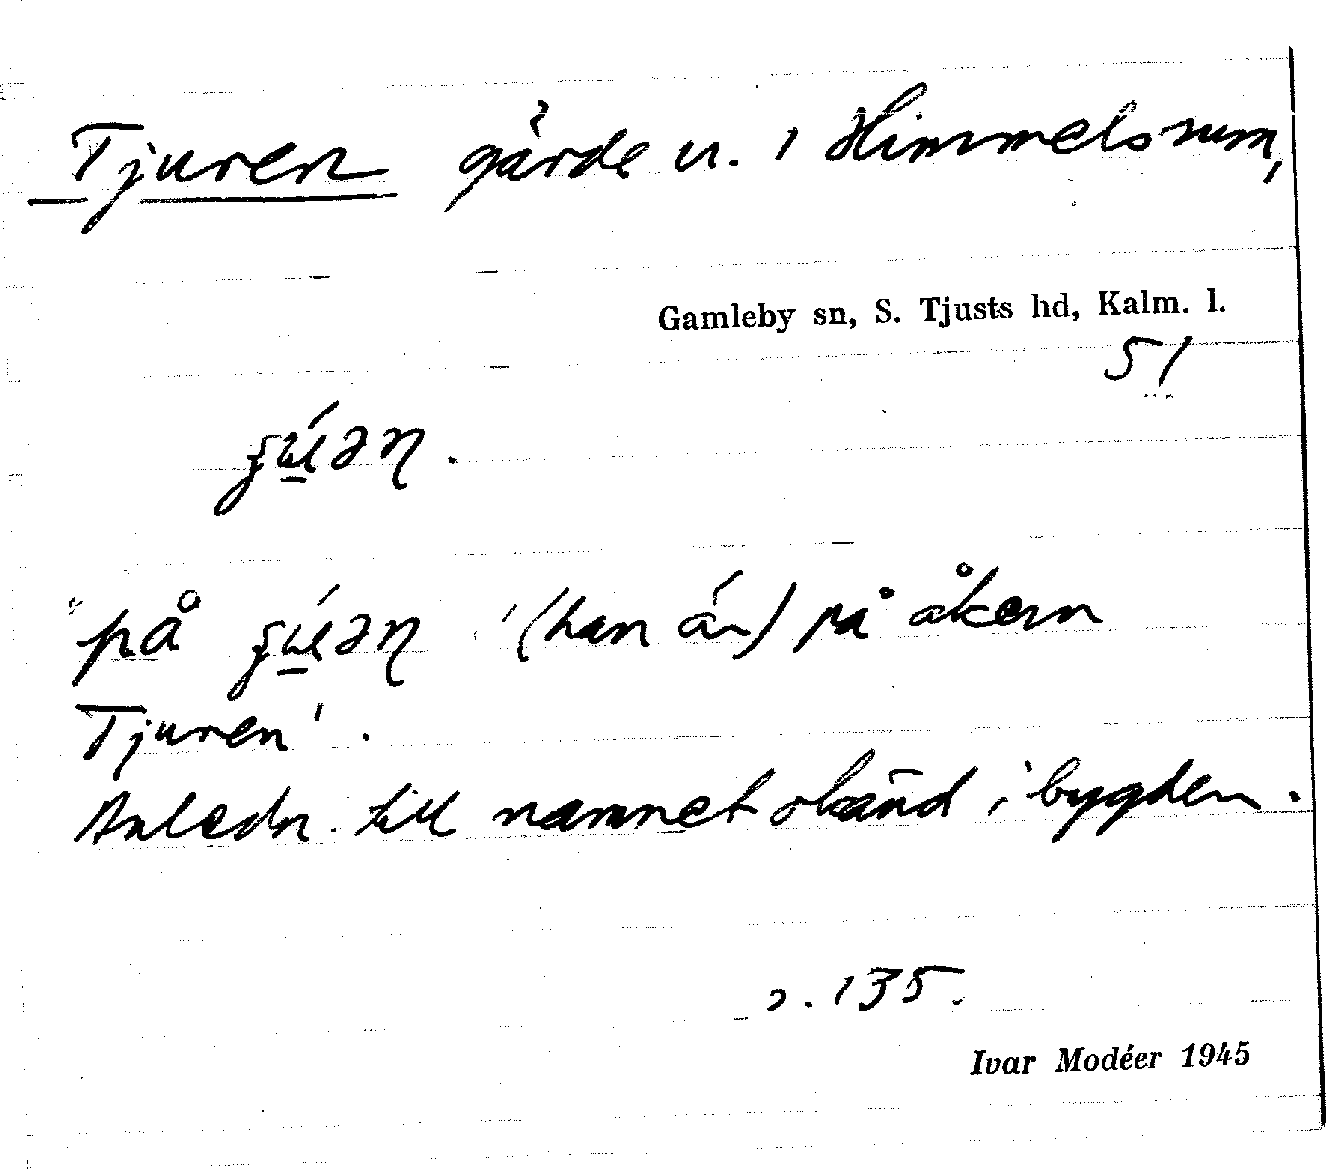 Tjuren gärde u. 1 Himmelsrum,
Gamleby sn, S. Tjusts hd, Kalm. l.
51
"på
'(han är) på åkern
Tjuren'.
Anledn. till namnet okänd i bygden.
s. 135.
Ivar Modéer 1945